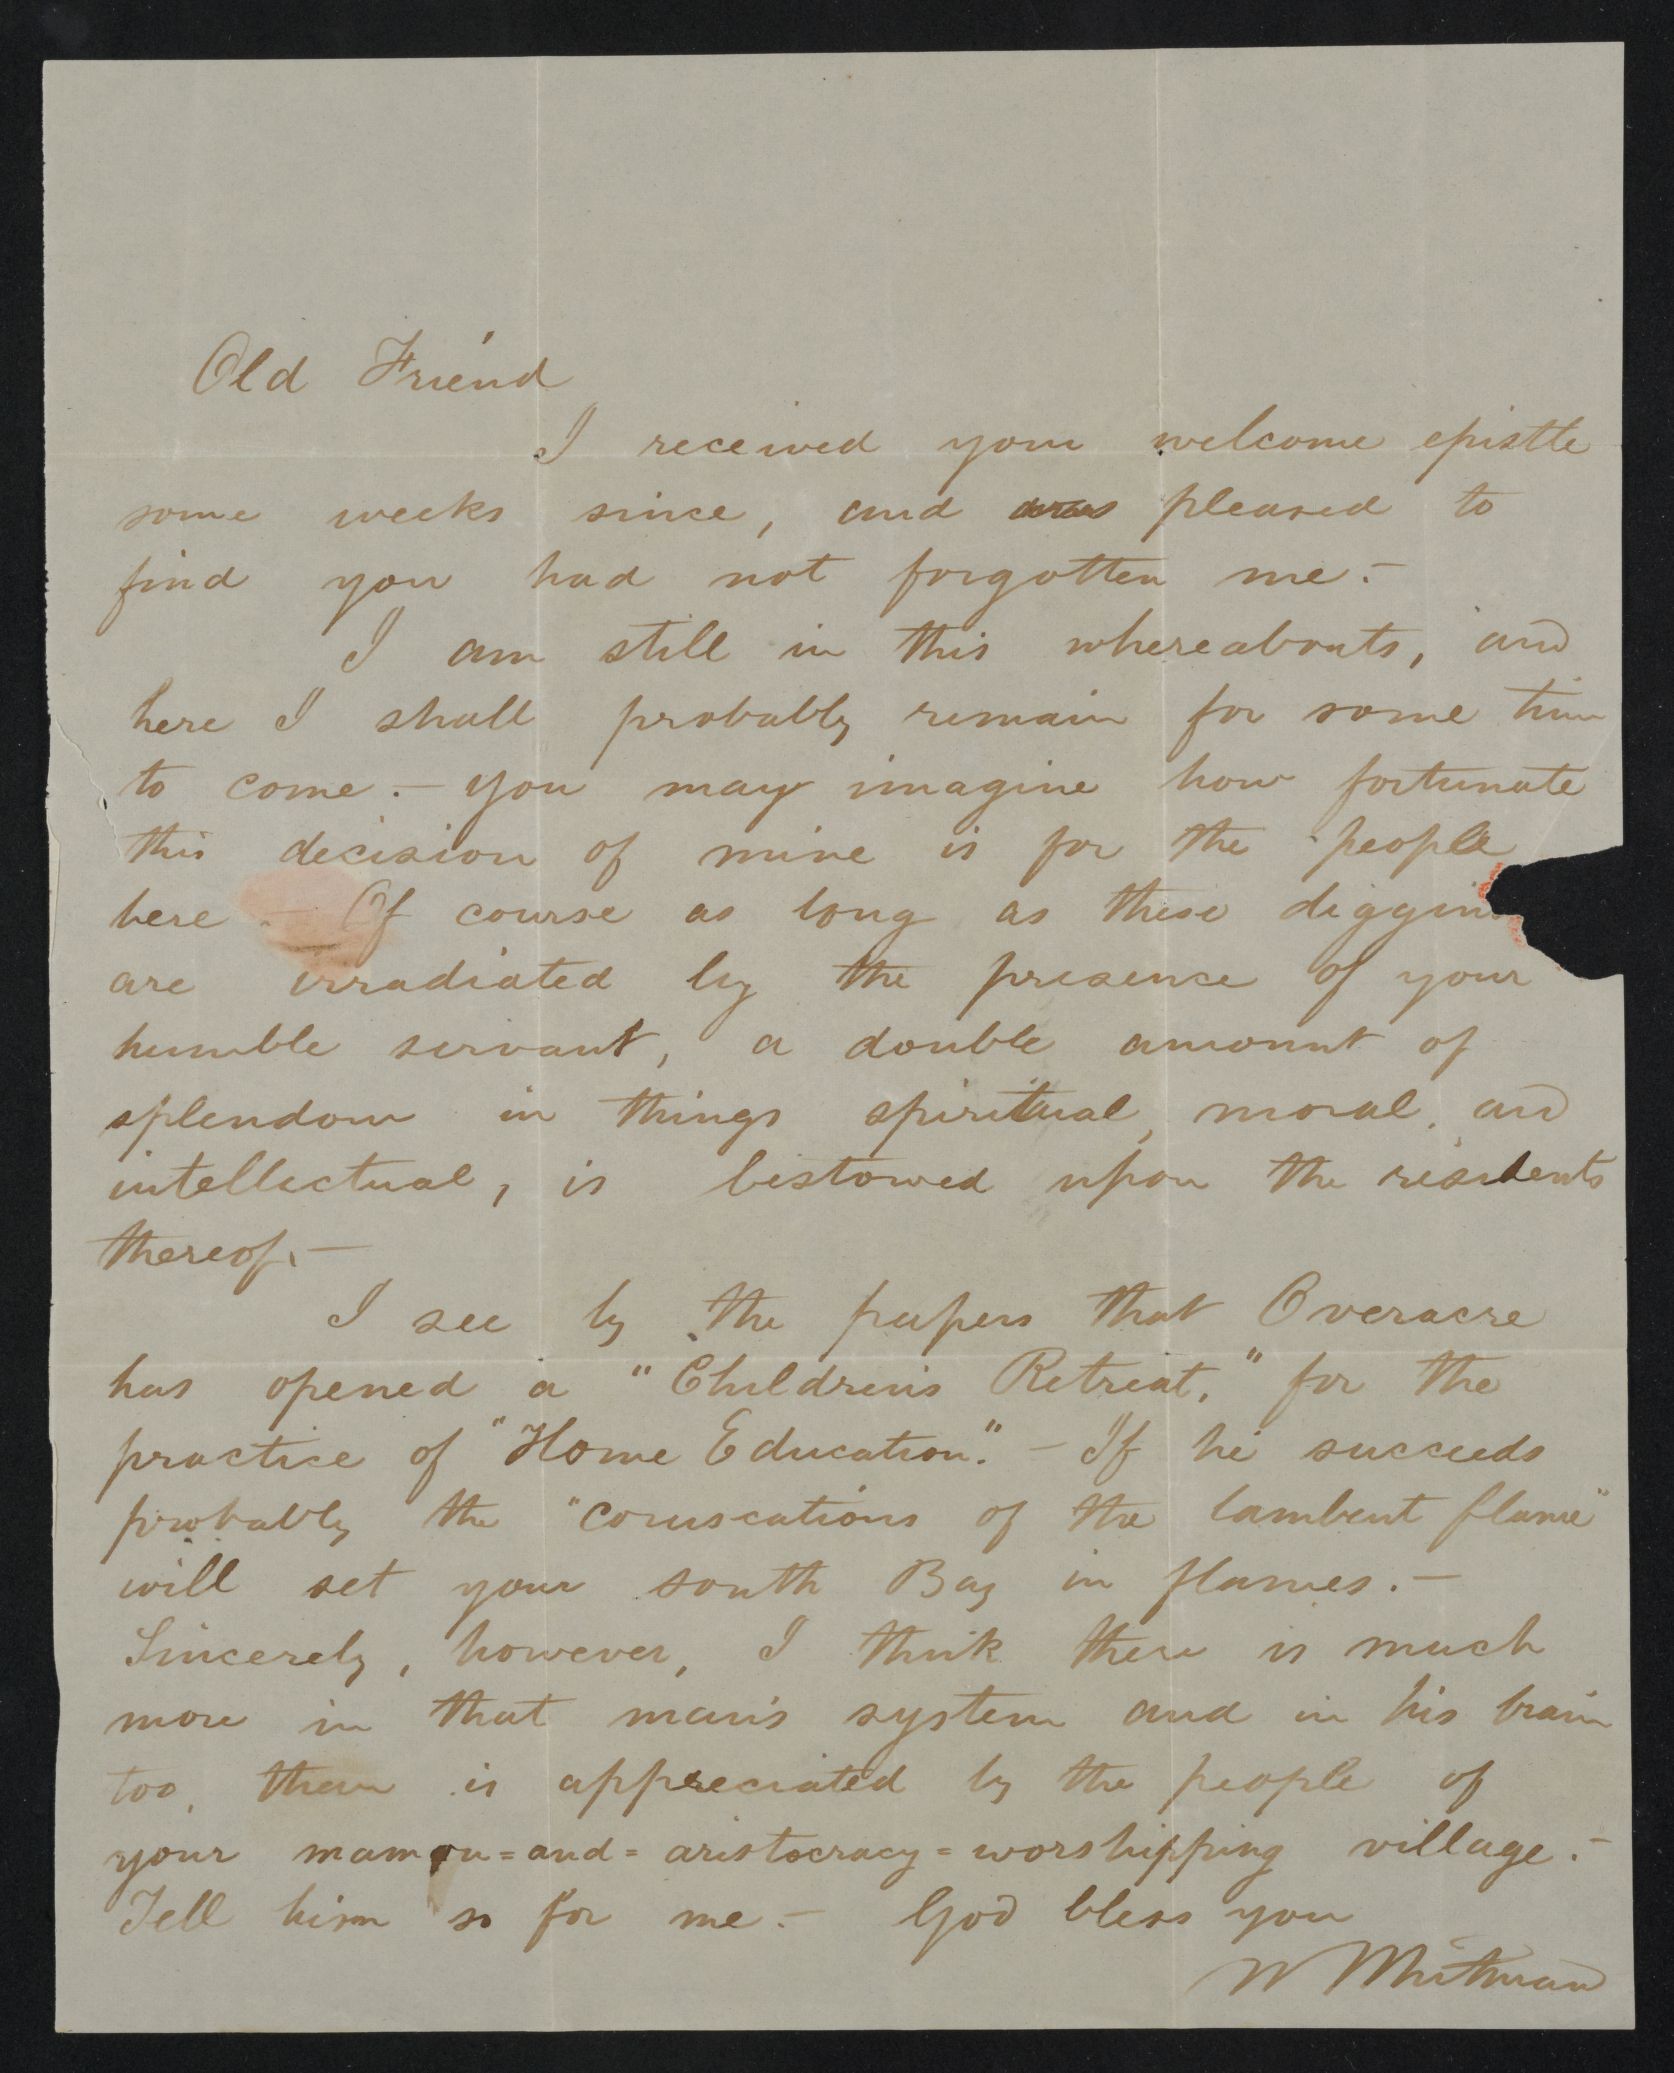 Old Friend
I received your welcome epistle
some weeks since, and was pleased to
find you had not forgotten me.—
I am still in this whereabouts, and
here I shall probably remain for some time
to come.— You may imagine how fortunate
this decision of mine is for the people
here.— Of course as long as these diggin
are irradiated by the presence of your
humble servant, a double amount of
splendour in things spiritual, moral, and
intellectual, is bestowed upon the residents
thereof.—
I see by the papers that Overacre
has opened a "Children's Retreat," for the
practice of "Home Education".— If he succeeds
probably the "coruscations of the lambent flame"
will set your south Bay in flames.—
Sincerely, however, I think there is much
more in that man's system and in his brain
too, than is appreciated by the people of
your mamon=and=aristocracy=worshipping village.—
Tell him so for me.— God bless you
W Whitman